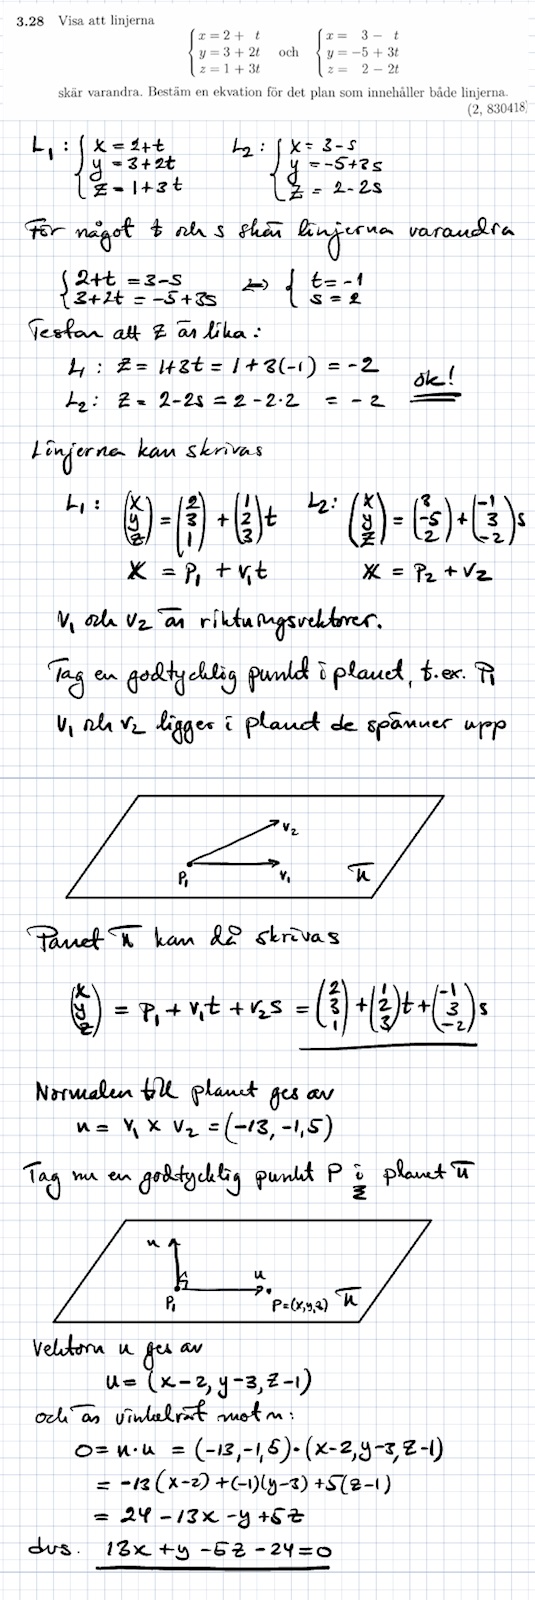 3.28 Visa att linjerna
{ x = 2 + t
y = 3 + 2t
z = 1 + 3t
och
{ x = 3 − t
y = −5 + 3t
z = 2 − 2t
skär varandra. Bestäm en ekvation för det plan som innehåller både linjerna.
(2, 830418)
L₁: { x = 2+t
y = 3+2t
z = 1+3t
L₂: { x = 3-s
y = -5+3s
z = 2-2s
För något t och s skär linjerna varandra
{ 2+t = 3-s
3+2t = -5+3s
⇔ { t = -1
s = 2
Testar att z är lika:
L₁: z = 1+3t = 1+3(-1) = -2
L₂: z = 2-2s = 2-2·2 = -2 ok!
Linjerna kan skrivas
L₁: (x y z) = (2 3 1) + (1 2 3)t L₂: (x y z) = (3 -5 2) + (-1 3 -2)s
X = P₁ + v₁t X = P₂ + v₂
v₁ och v₂ är riktningsvektorer.
Tag en godtycklig punkt i planet, t.ex. P₁
v₁ och v₂ ligger i planet de spänner upp
v₂
P₁ v₁ π
Panet π kan då skrivas
(x y z) = P₁ + v₁t + v₂s = (2 3 1) + (1 2 3)t + (-1 3 -2)s
Normalen till planet ges av
n = v₁ × v₂ = (-13, -1, 5)
Tag nu en godtycklig punkt P i planet π
n u
P₁ P=(x,y,z) π
Vektorn u ges av
u = (x-2, y-3, z-1)
och är vinkelrät mot n:
0 = n·u = (-13, -1, 5)·(x-2, y-3, z-1)
= -13(x-2) + (-1)(y-3) + 5(z-1)
= 24 - 13x - y + 5z
dvs. 13x + y - 5z - 24 = 0